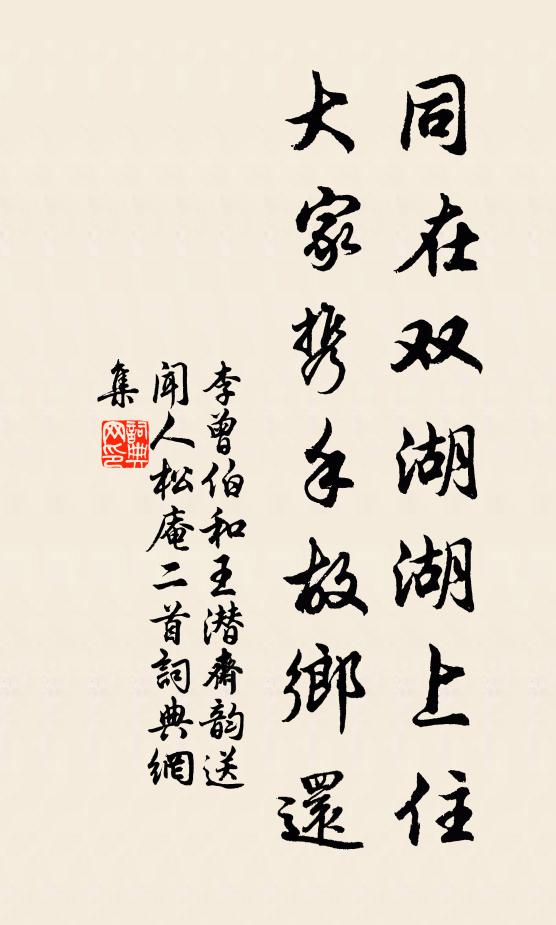 同在双湖湖上住
大家携手故鄉還
李曾伯和王潜齋韵送
闻人松庵二首詞典網
集
詞典网印